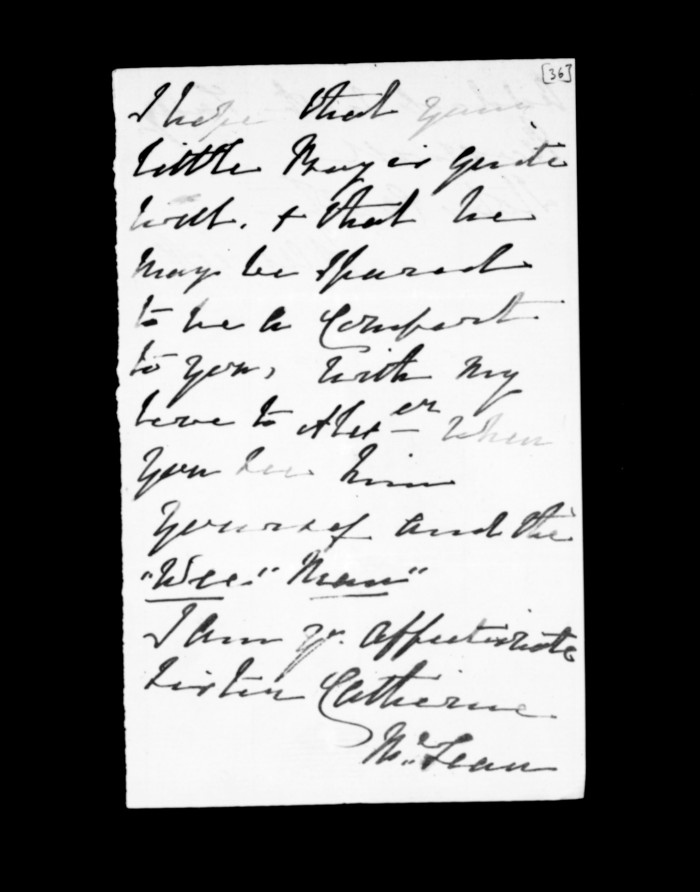 [36]
I hope that your
little Boy is quite
well. & that he
may be spared
to be a Comfort
to you, with my
love to Alexer when
you see him
yourself and the
"Wee" "Man"
I am yr. affectionate
sister Catherine
McLean